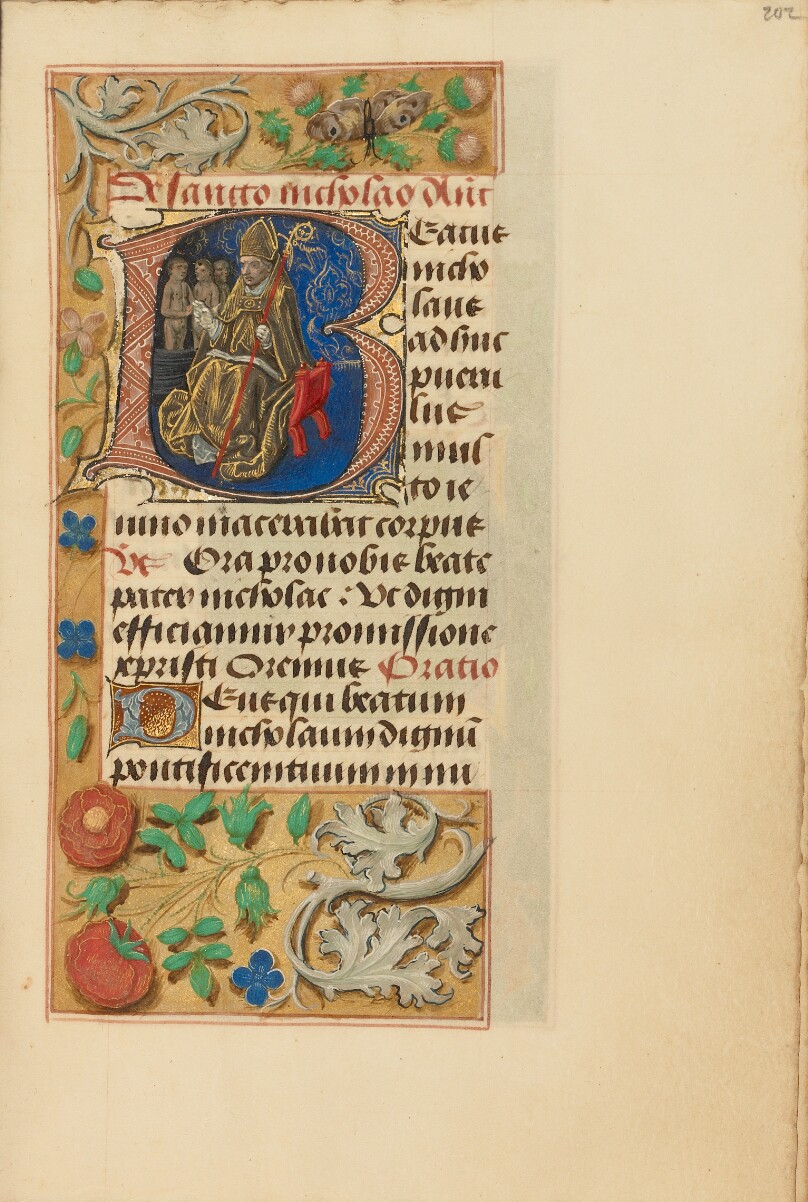 202
De sancto nicholao Ant
Beatus
nicho
laus
adhuc
pueru
lus
mul
to ie
iunio macerabat corpus
Vs Ora pro nobis beate
pater nicholae : Vt digni
efficiamur promissione
xpristi Oremus Oratio
Deus qui beatum
nicholaum dignū
pontificem tuum in nu